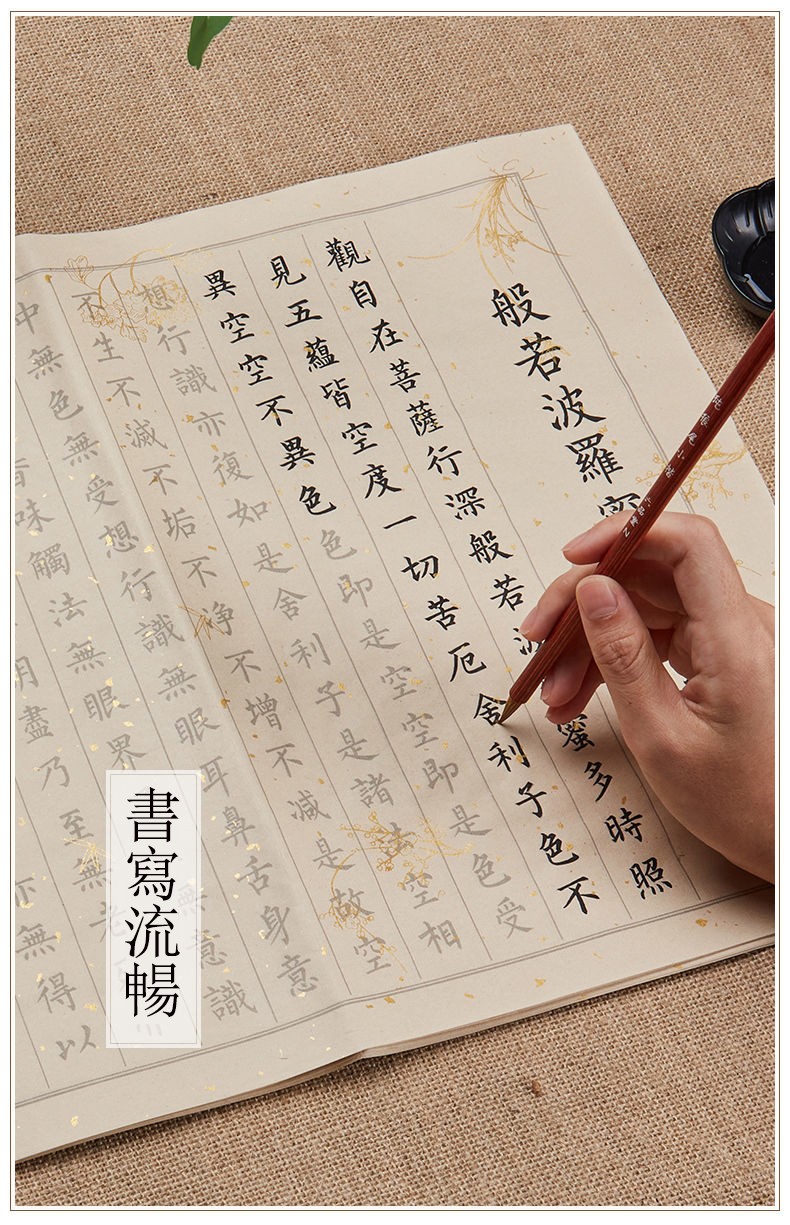 般若波羅
觀自在菩薩行深般若波蜜多時照
見五蘊皆空度一切苦厄舍利子色不
異空空不異色色即是空空即是色受
想行識亦復如是舍利子是諸法空相
不生不滅不垢不净不增不减是故空
中無色無受想行識無眼耳鼻舌身意
香味觸法無眼界無意識
明盡乃至無老
亦無得以
書寫流暢